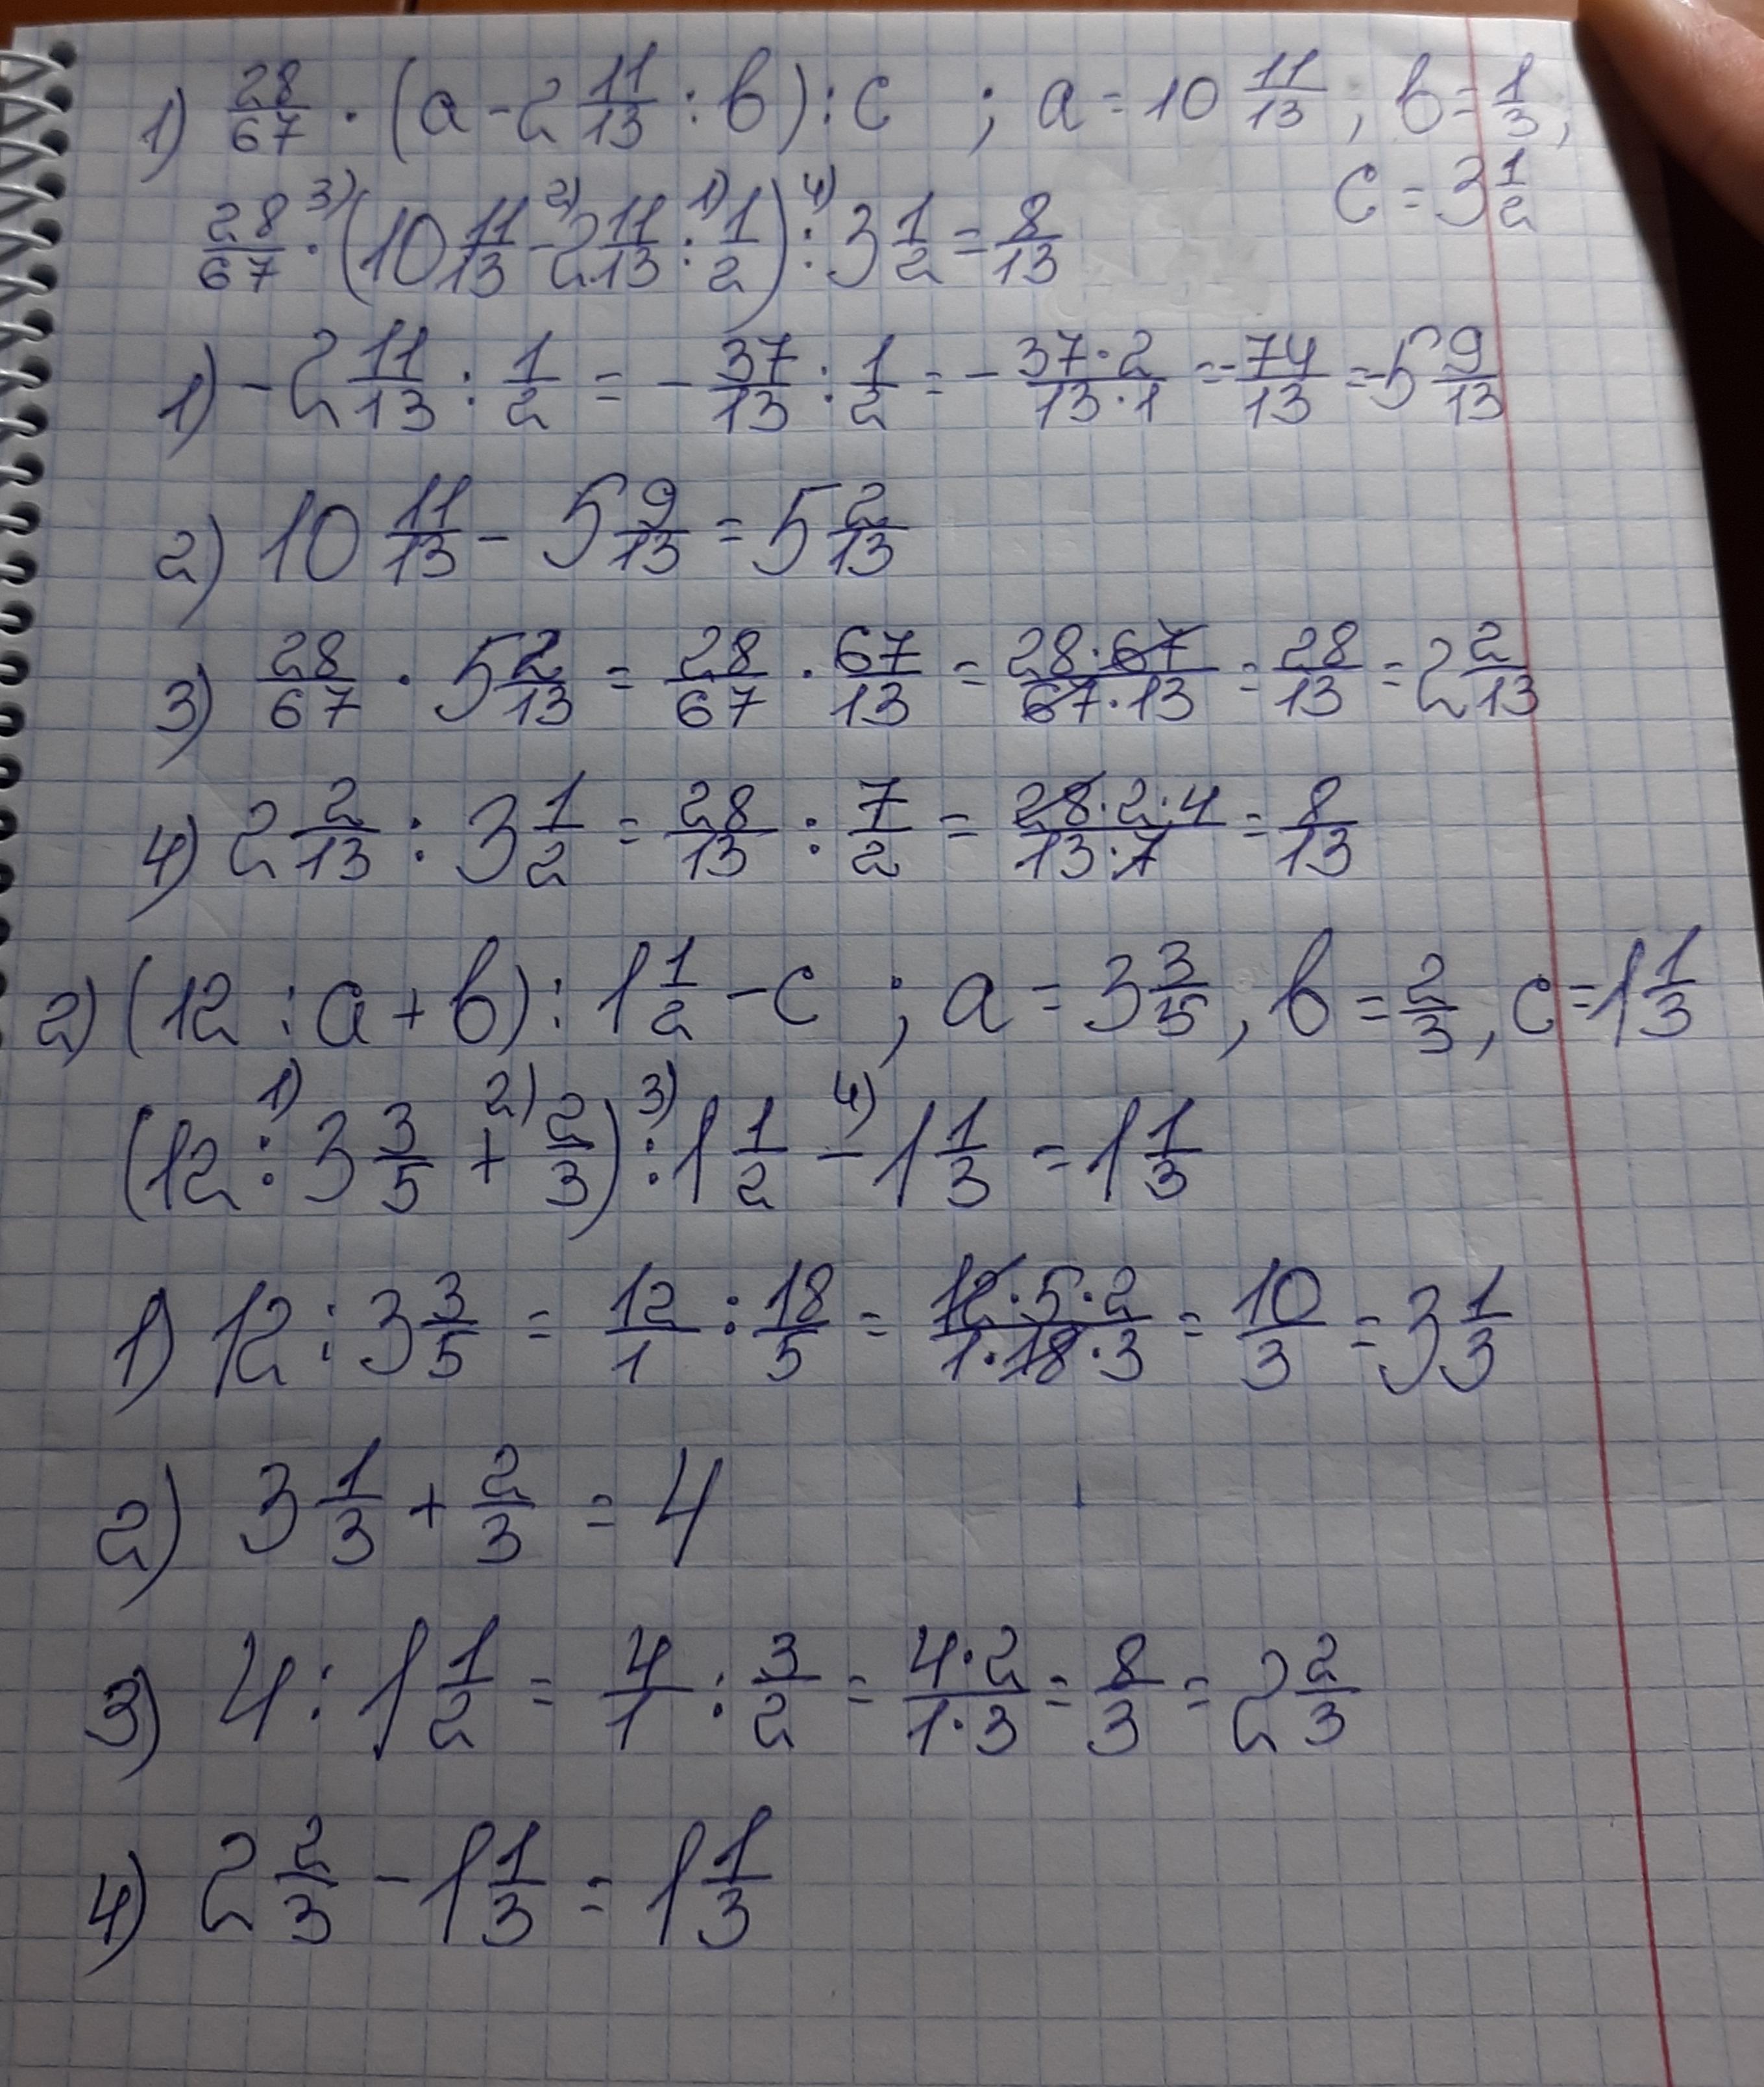 1) 28/67 · (a - 2 11/13 : b) : c ; a = 10 11/13 ; b = 1/3 ;
c = 3 1/2
28/67 ·³⁾ (10 11/13 -²⁾ 2 11/13 :¹⁾ 1/2) :⁴⁾ 3 1/2 = 8/13
1) - 2 11/13 : 1/2 = - 37/13 : 1/2 = - 37·2/13·1 = - 74/13 = -5 9/13
2) 10 11/13 - 5 9/13 = 5 2/13
3) 28/67 · 5 2/13 = 28/67 · 67/13 = 28·67/67·13 = 28/13 = 2 2/13
4) 2 2/13 : 3 1/2 = 28/13 : 7/2 = 28·2·4/13·7 = 8/13
2) (12 : a + b) : 1 1/2 - c ; a = 3 3/5, b = 2/3, c = 1 1/3
(12 :¹⁾ 3 3/5 +²⁾ 2/3) :³⁾ 1 1/2 -⁴⁾ 1 1/3 = 1 1/3
1) 12 : 3 3/5 = 12/1 : 18/5 = 12·5·2/1·18·3 = 10/3 = 3 1/3
2) 3 1/3 + 2/3 = 4
3) 4 : 1 1/2 = 4/1 : 3/2 = 4·2/1·3 = 8/3 = 2 2/3
4) 2 2/3 - 1 1/3 = 1 1/3